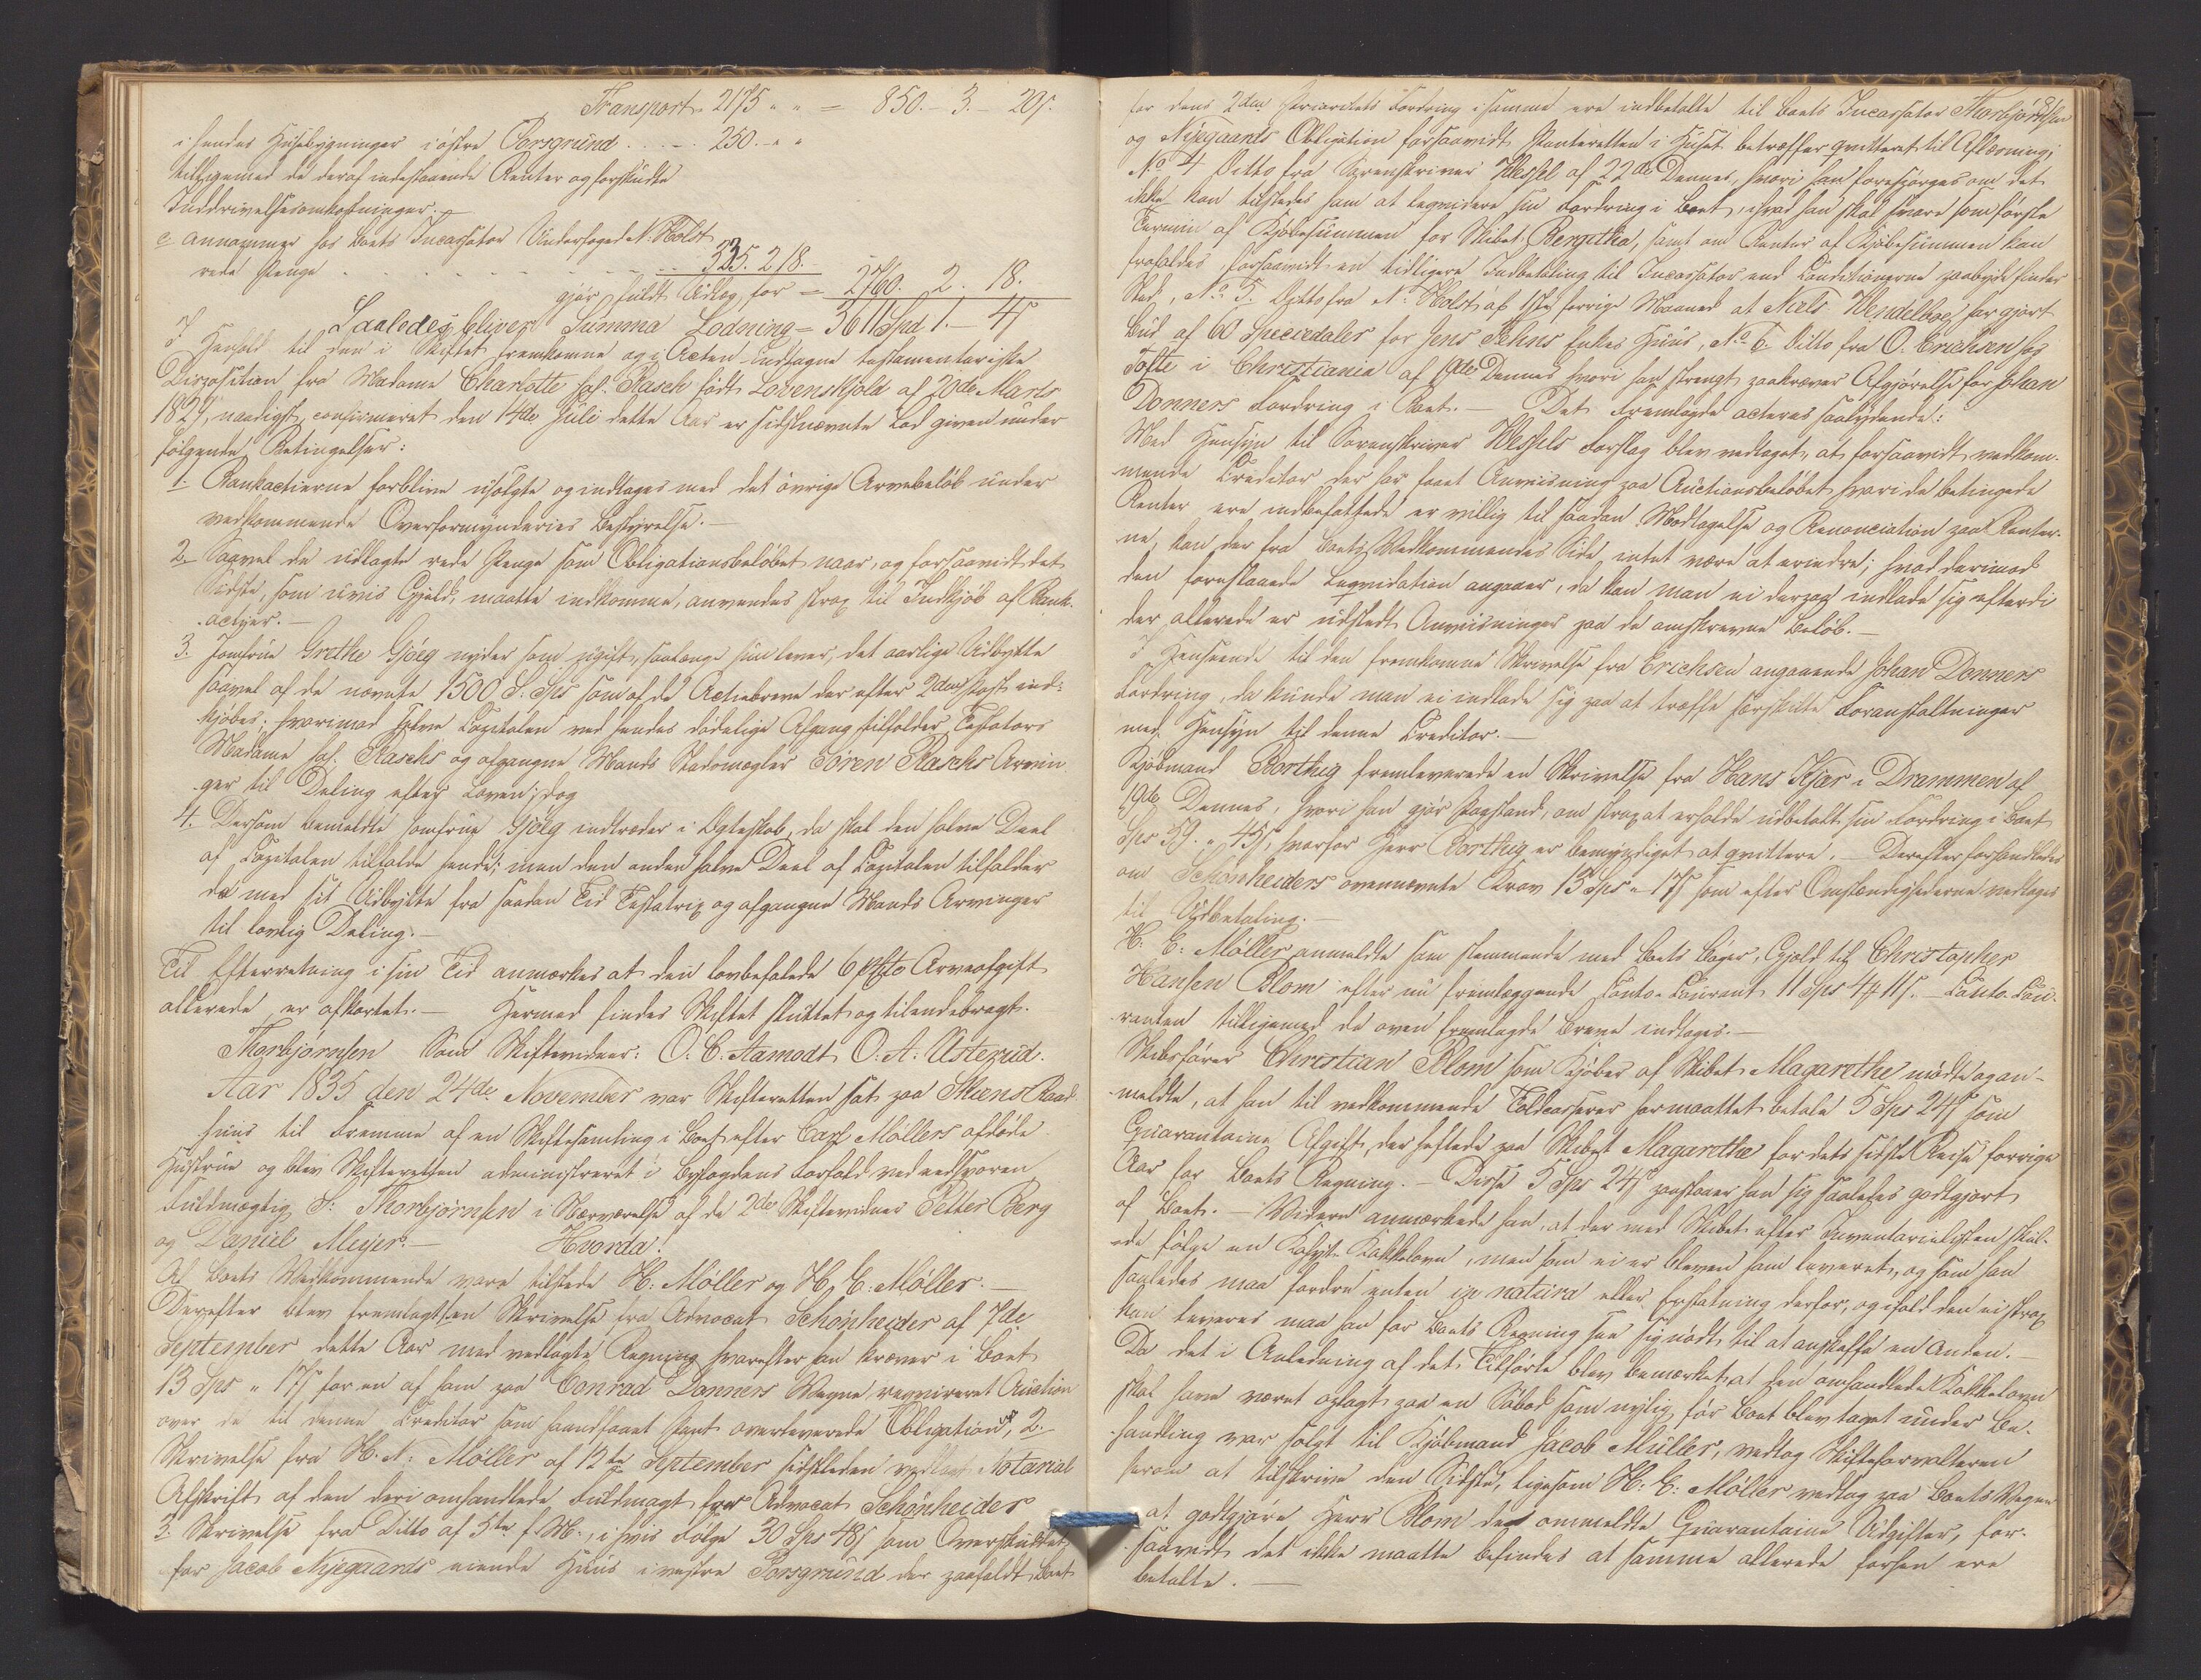 Transport 2175 " " = 850.- 3.- 20ß.
i hendes Huusbygninger i østre Porsgrund . . . . 250. " "
tilligemed de deraf indestaaende Renter og forskudte
Inddrivelsesomkostninger.
c. annammer hos Boets Incassator Underfoged N. Holst
rede Penge . . . . . . 335. 2. 18.
gjør fuldt Udlæg for = 2760. 2. 18.
Saaledes bliver Summa Lodning = 3611 Spd 1.- 4ß
I Henhold til den i Skiftet fremkomne og i Acten indtagne testamentariske
Disposition fra Madame Charlotte sal. Rasch født Lövenskjold af 20de Marts
1827, naadigst confirmeret den 14de Juli dette Aar er sidstnævnte Lod given under
følgende Betingelser:
1. Bankactierne forblive usolgte og indtages med det øvrige Arvebeløb under
vedkommende Overformynderies Bestyrelse.-
2. Saavel de udlagte rede Penge som Obligationsbeløbet naar, og forsaavidt det
Sidste, som uvis Gjeld, maatte indkomme, anvendes strax til Indkjøb af Bank-
actier.-
3. Jomfrue Grethe Gjöeg nyder som ugift, saalænge hun lever, det aarlige Udbytte
saavel af de nævnte 1500 S. Sps som af de Actiebreve der efter 2den Post ind-
kjøbes; hvorimod selve Capitalen ved hendes dødelige Afgang tilfalder Testators
Madame sal. Raschs og afgangne Mands Stadsmægler Sören Raschs Arvin-
ger til Deling efter Loven; dog
4. Dersom bemeldte Jomfrue Gjöeg indtræder i Ægteskab, da skal den halve Deel
af Capitalen tilfalde hende; men den anden halve Deel af Capitalen tilfalder
da med sit Udbytte fra saadan Tid Testatrix og afgangne Mands Arvinger
til lovlig Deling.-
Til Efterretning i sin Tid anmærkes at den lovbefalede 6 pCto Arveafgift
allerede er afkortet.- Hermed findes Skiftet sluttet og tilendebragt.
Thorbjörnsen Som Skiftevidner: O. C. Aamodt O. A. Usterud.
Aar 1835 den 24de November var Skifteretten sat paa Skeens Raad-
huus til Fremme af en Skiftesamling i Boet efter Carl Möllers afdøde
Hustrue og blev Skifteretten administreret i Byfogdens Forfald ved edsvoren
Fuldmægtig S: Thorbjörnsen i Overværelse af de 2de Skiftevidner Petter Berg
og Daniel Meyer.- Hvorda!
Af Boets Vedkommende vare tilstede H: Möller og H. C: Möller.-
Derefter blev fremlagt 1. en Skrivelse fra Advocat Schönheider af 7de
September dette Aar med vedlagte Regning hvorefter han kræver i Boet
13 Sps " 17ß for en af ham paa Conrad Donners Vegne reqvireret Auction
over de til denne Creditor som haandfaaet Pant overleverede Obligationer, 2.
Skrivelse fra H. N: Möller af 12te September sidstleden vedlagt Notarial
Afskrift af den deri omhandlede Fuldmagt for Advocat Schönheider
3. Skrivelse fra Ditto af 5te f. M., i hvis Følge 30 Sps 48ß som Overskuddet
for Jacob Nygaards eiende Huus i vestre Porsgrund der paafaldt Boet
for dens 2den Prioritets Fordring i samme ere indbetalte til Boets Incassator Thorbjörnsen
og Nygaards Obligation forsaavidt Panteretten i Huset betræffer qvitteret til Aflæsning;
No 4 Ditto fra Sorenskriver Wessel af 22de Dennes, hvori han forespørges om det
ikke kan tilstedes ham at leqvidere sin Fordring i Boet, ihvad han skal svare som første
Termin af Kjøbesummen for Skibet Bergitha, samt om Renter af Kjøbesummen kan
frafaldes, forsaavidt en tidligere Indbetaling til Incassator end Conditionerne paabyde finder
Sted, No 5. Ditto fra N. Holst af 1ste forrige Maaned at Niels Wendelboe har gjort
Bud af 60 Speciedaler for Jens Jehns Enkes Huus, No 6 Ditto fra O. Erichsen hos
Tofte i Christiania af Dennes hvori han strengt paakræver Afgjørelse for Johan
Donners Fordring i Boet.- Det Fremlagde acteres saalydende:
Med Hensyn til Sorenskriver Wessels Forslag blev vedtaget, at forsaavidt vedkom-
mende Creditor der har faaet Anviisning paa Auctionsbeløbet hvori de betingede
Renter ere indbefattede er villig til saadan Modtagelse og Renonciation paa Renter-
ne, kan der fra Boets Vedkommendes Side, intet være at erindre; hvad derimod
den foreslaaede Leqvidation angaaer, da kan man ei derpaa indlade sig efterdi
der allerede er udstedt Anviisninger paa de omskrevne Beløb.-
I Henseende til den fremkomne Skrivelse fra Erichsen angaaende Johan Donners
Fordring, da kunde man ei indlade sig paa at træffe særskilte Foranstaltninger
med Hensyn til denne Creditor.-
Kjøbmand Borthig fremleverede en Skrivelse fra Hans Kjær i Drammen af
19de Dennes, hvori han gjør Paastand, om strax at erholde udbetalt sin Fordring i Boet
Sps 59. " 45ß, hvorfor Herr Borthig er bemyndiget at qvittere.- Derefter forhandledes
om Schönheiders ovennævnte Krav 13 Sps " 17ß som efter Omstændighederne vedtoges
til Udbetaling.-
H. C: Möller anmeldte som stemmende med Boets Bøger, Gjeld til Christopher
Hansen Blom efter nu fremlæggende Conto-Courant 11 Sps 4 # 11ß.- Conto-Cou-
ranten tilligemed de oven fremlagde Breve indtages.-
Skibsfører Christian Blom som Kjøber af Skibet Magarethe mødte og an-
meldte, at han til vedkommende Toldcasserer har maattet betale 5 Sps 24ß som
Quarantaine Afgift der heftede paa Skibet Magarethe for dets sidste Reise forrige
Aar for Boets Regning.- Disse 5 Sps 24ß paastaaer han sig saaledes godtgjort
af Boet.- Videre anmærkede han, at der med Skibet efter Inventarielisten skul-
de følge en Kahyt-Kakkelovn, men som ei er bleven ham leveret, og som han
saaledes maa fordre enten in natura eller Erstatning derfor, og ifald den ei strax
kan leveres maa han for Boets Regning see sig nødt til at anskaffe en Anden.-
Da det i Anledning af det Tilførte blev bemærket at den omhandlede Kakkelovn
skal have været oplagt paa en Søbod som nylig før Boet blev taget under Be-
handling var solgt til Kjøbmand Jacob Müller, vedtog Skifteforvalteren
herom at tilskrive den Sidste, ligesom H. C: Möller vedtog paa Boets Vegne
at godtgjøre Herr Blom de ommeldte Quarantaine Udgifter, for-
saavidt det ikke maatte befindes at samme allerede forhen ere
betalte.-